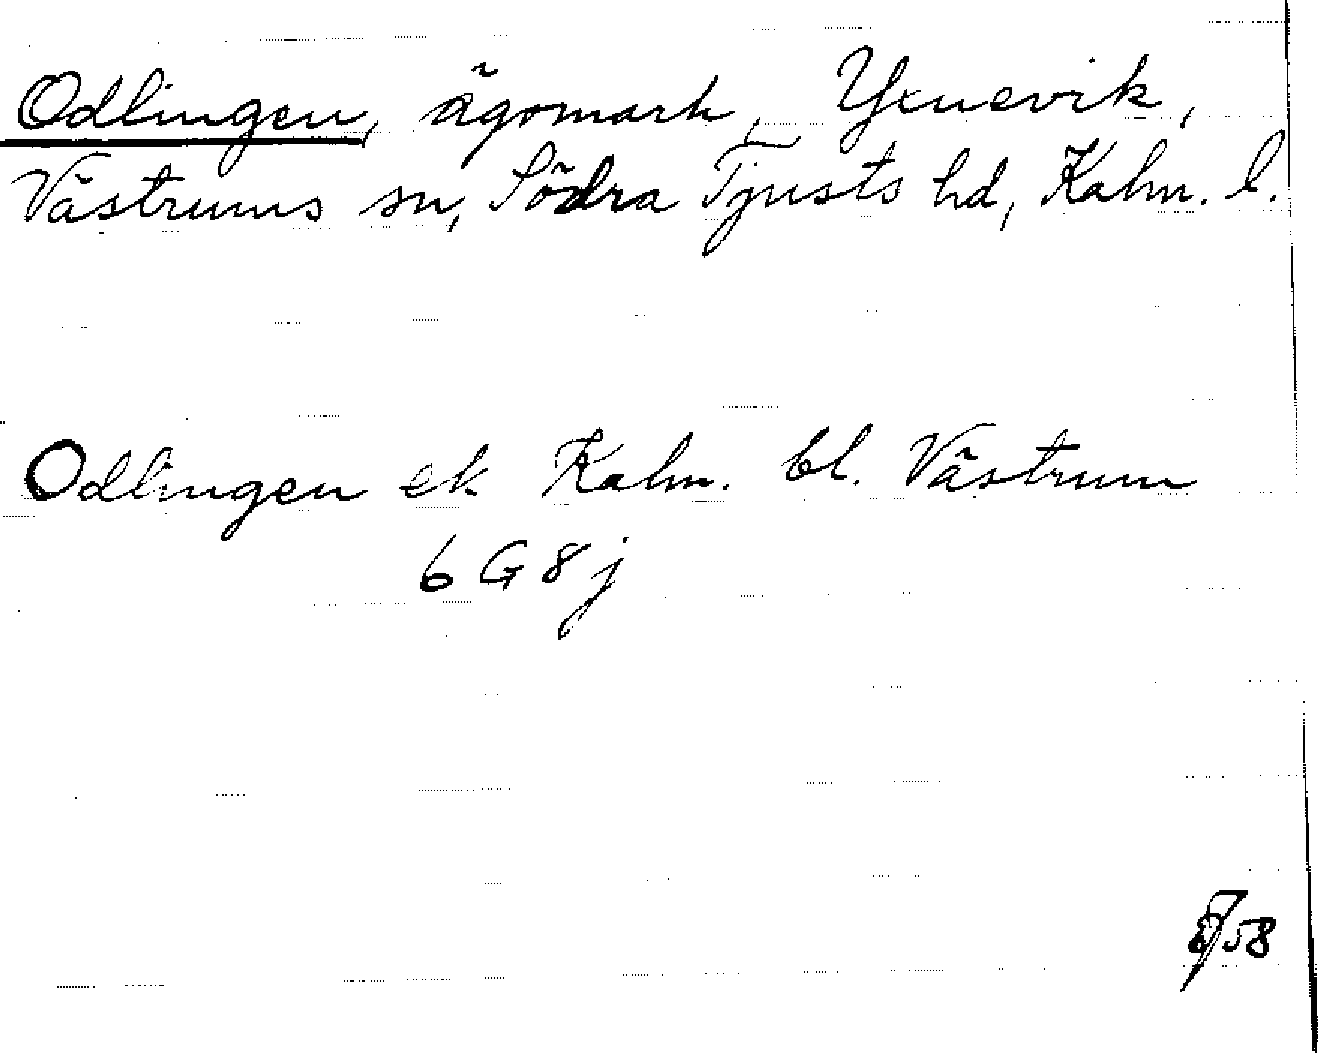 Odlingen, ägomark, Yxnevik,
Västrums sn, Södra Tjusts hd, Kalm. l.
Odlingen ek Kalm. bl. Västrum
6 G 8 j
58